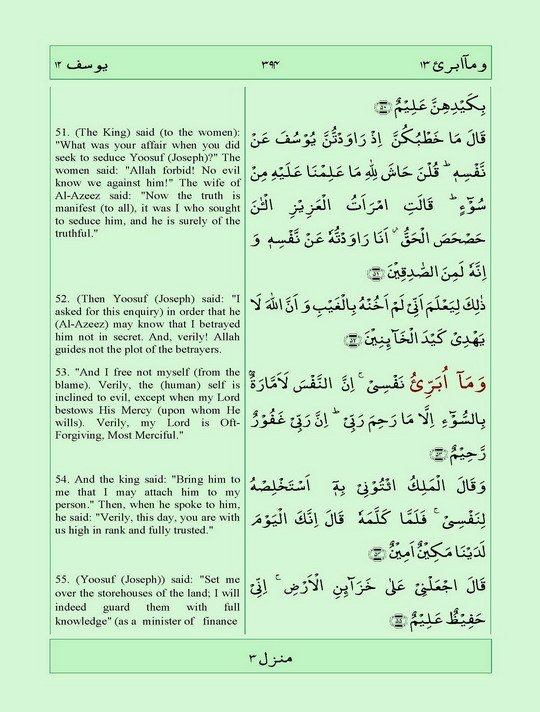 وماۤابرئ ١٣
٣٩٤
يوسف ١٢
بِكَيْدِهِنَّ عَلِيْمٌ ﴿۵۰﴾
قَالَ مَا خَطْبُكُنَّ اِذْ رَاوَدْتُّنَّ يُوْسُفَ عَنْ
نَّفْسِهٖ ؕ قُلْنَ حَاشَ لِلّٰهِ مَا عَلِمْنَا عَلَيْهِ مِنْ
سُوْٓءٍ ؕ قَالَتِ امْرَاَتُ الْعَزِيْزِ الْـٰٔنَ
حَصْحَصَ الْحَقُّ ۫ اَنَا رَاوَدْتُّهٗ عَنْ نَّفْسِهٖ وَ
اِنَّهٗ لَمِنَ الصّٰدِقِيْنَ ﴿۵۱﴾
ذٰلِكَ لِيَعْلَمَ اَنِّىْ لَمْ اَخُنْهُ بِالْغَيْبِ وَ اَنَّ اللّٰهَ لَا
يَهْدِىْ كَيْدَ الْخَآىِٕنِيْنَ ﴿۵۲﴾
وَ مَاۤ اُبَرِّئُ نَفْسِىْ ۚ اِنَّ النَّفْسَ لَاَمَّارَةٌۢ
بِالسُّوْٓءِ اِلَّا مَا رَحِمَ رَبِّىْ ؕ اِنَّ رَبِّىْ غَفُوْرٌ
رَّحِيْمٌ ﴿۵۳﴾
وَقَالَ الْمَلِكُ ائْتُوْنِىْ بِهٖۤ اَسْتَخْلِصْهُ
لِنَفْسِىْ ۚ فَلَمَّا كَلَّمَهٗ قَالَ اِنَّكَ الْيَوْمَ
لَدَيْنَا مَكِيْنٌ اَمِيْنٌ ﴿۵۴﴾
قَالَ اجْعَلْنِىْ عَلٰى خَزَآىِٕنِ الْاَرْضِ ۚ اِنِّىْ
حَفِيْظٌ عَلِيْمٌ ﴿۵۵﴾
51. (The King) said (to the women):
"What was your affair when you did
seek to seduce Yoosuf (Joseph)?" The
women said: "Allah forbid! No evil
know we against him!" The wife of
Al-Azeez said: "Now the truth is
manifest (to all), it was I who sought
to seduce him, and he is surely of the
truthful."
52. (Then Yoosuf (Joseph) said: "I
asked for this enquiry) in order that he
(Al-Azeez) may know that I betrayed
him not in secret. And, verily! Allah
guides not the plot of the betrayers.
53. "And I free not myself (from the
blame). Verily, the (human) self is
inclined to evil, except when my Lord
bestows His Mercy (upon whom He
wills). Verily, my Lord is Oft-
Forgiving, Most Merciful."
54. And the king said: "Bring him to
me that I may attach him to my
person." Then, when he spoke to him,
he said: "Verily, this day, you are with
us high in rank and fully trusted."
55. (Yoosuf (Joseph)) said: "Set me
over the storehouses of the land; I will
indeed guard them with full
knowledge" (as a minister of finance
منزل ٣